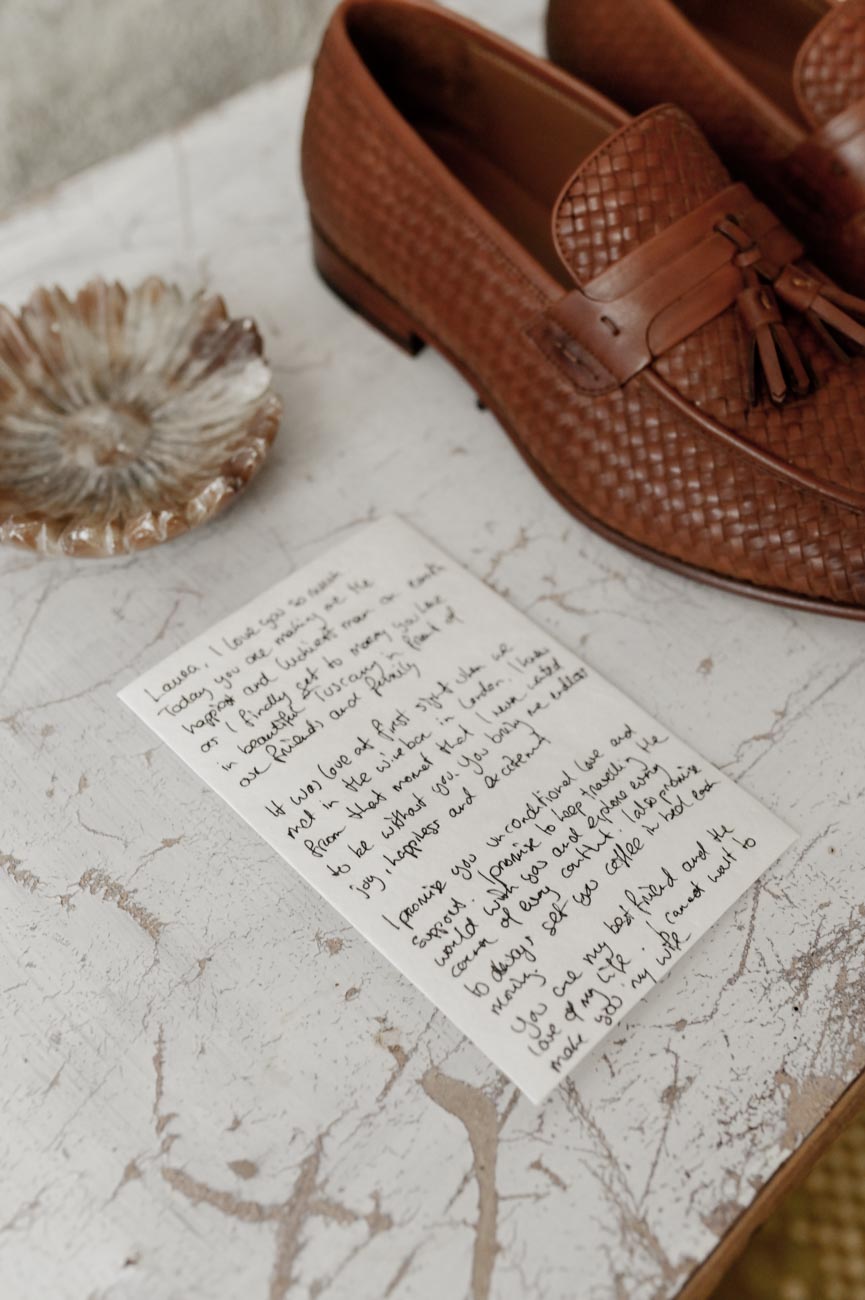 Laura, I love you so much
Today you are making me the
happiest and luckiest man on earth
as I finally get to marry you here
in beautiful Tuscany in front of
our friends and family
It was love at first sight when we
met in the wine bar in London. I knew
from that moment that I never wanted
to be without you. You bring me endless
joy, happiness and excitement
I promise you unconditional love and
support. I promise to keep travelling the
world with you and explore every
corner of every continent. I also promise
to always get you coffee in bed each
morning.
You are my best friend and the
love of my life. I cannot wait to
make you my wife